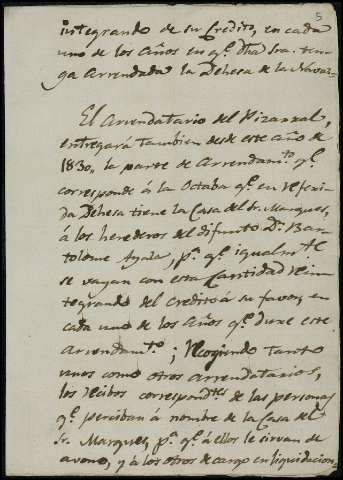 5
integrando de su Credito, en cada
uno de los Años en q.e dha Sra. ten-
ga Arrendada la Dehesa de la Navaz-
El Arrendatario del Pizarral,
entregará tambien desde este año de
1830,, la parte de Arrendam.to q.e
corresponde á la Octaba q.e en referi-
da Dehesa tiene la Casa del Sr. Marques,
á los herederos del difunto D.n Bar-
tolome Ayala, p.a q.e igualm.te
se vayan con esta Cantidad Rein-
tegrando del credito á su favor, en
cada uno de los Años q.e dure este
Arrendam.to; Recogiendo tanto
unos como otros Arrendatarios,
los Recibos correspond.tes de las personas
q.e perciban á nombre de la Casa del
Sr. Marques, p.a q.e á ellos le sirvan de
avono, y á los otros de cargo en liquidacion,